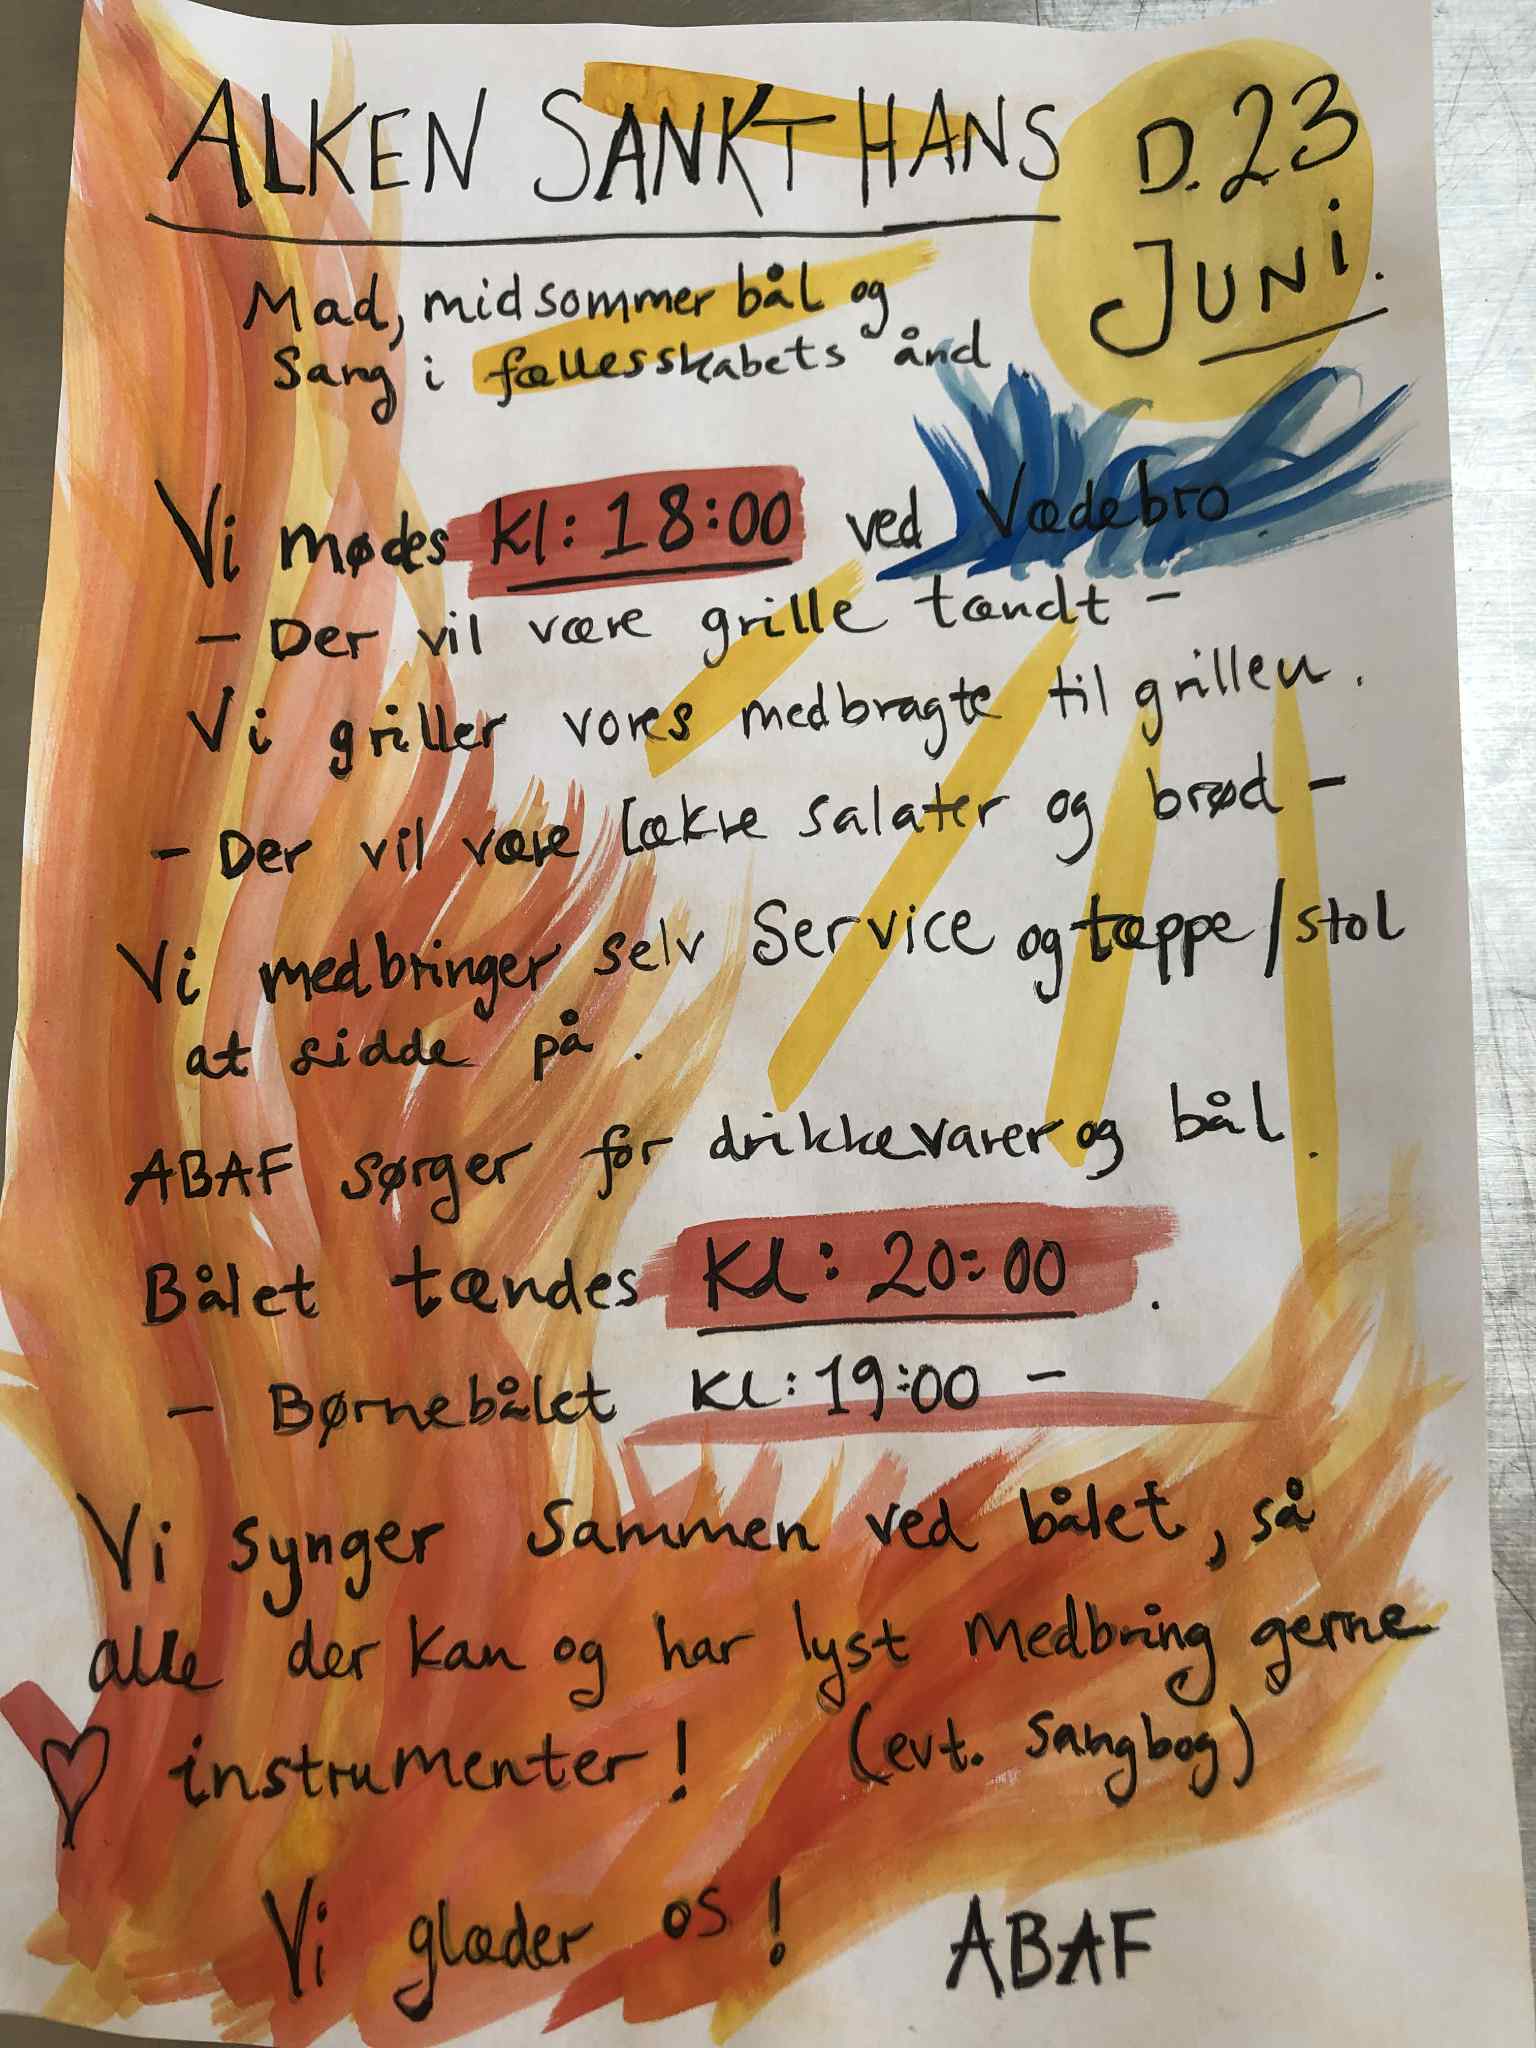 ALKEN SANKT HANS D. 23 JUNI.
Mad, midsommer bål og
Sang i fællesskabets ånd.
Vi mødes kl: 18:00 ved Vædebro.
- Der vil være grille tændt -
Vi griller vores medbragte til grillen.
- Der vil være lækre salater og brød -
Vi medbringer selv Service og tæppe/stol
at sidde på.
ABAF sørger for drikkevarer og bål.
Bålet tændes Kl: 20:00.
- Børnebålet kl: 19:00 -
Vi synger Sammen ved bålet, så
alle der kan og har lyst Medbring gerne
instrumenter! (evt. Sangbog)
Vi glæder os! ABAF